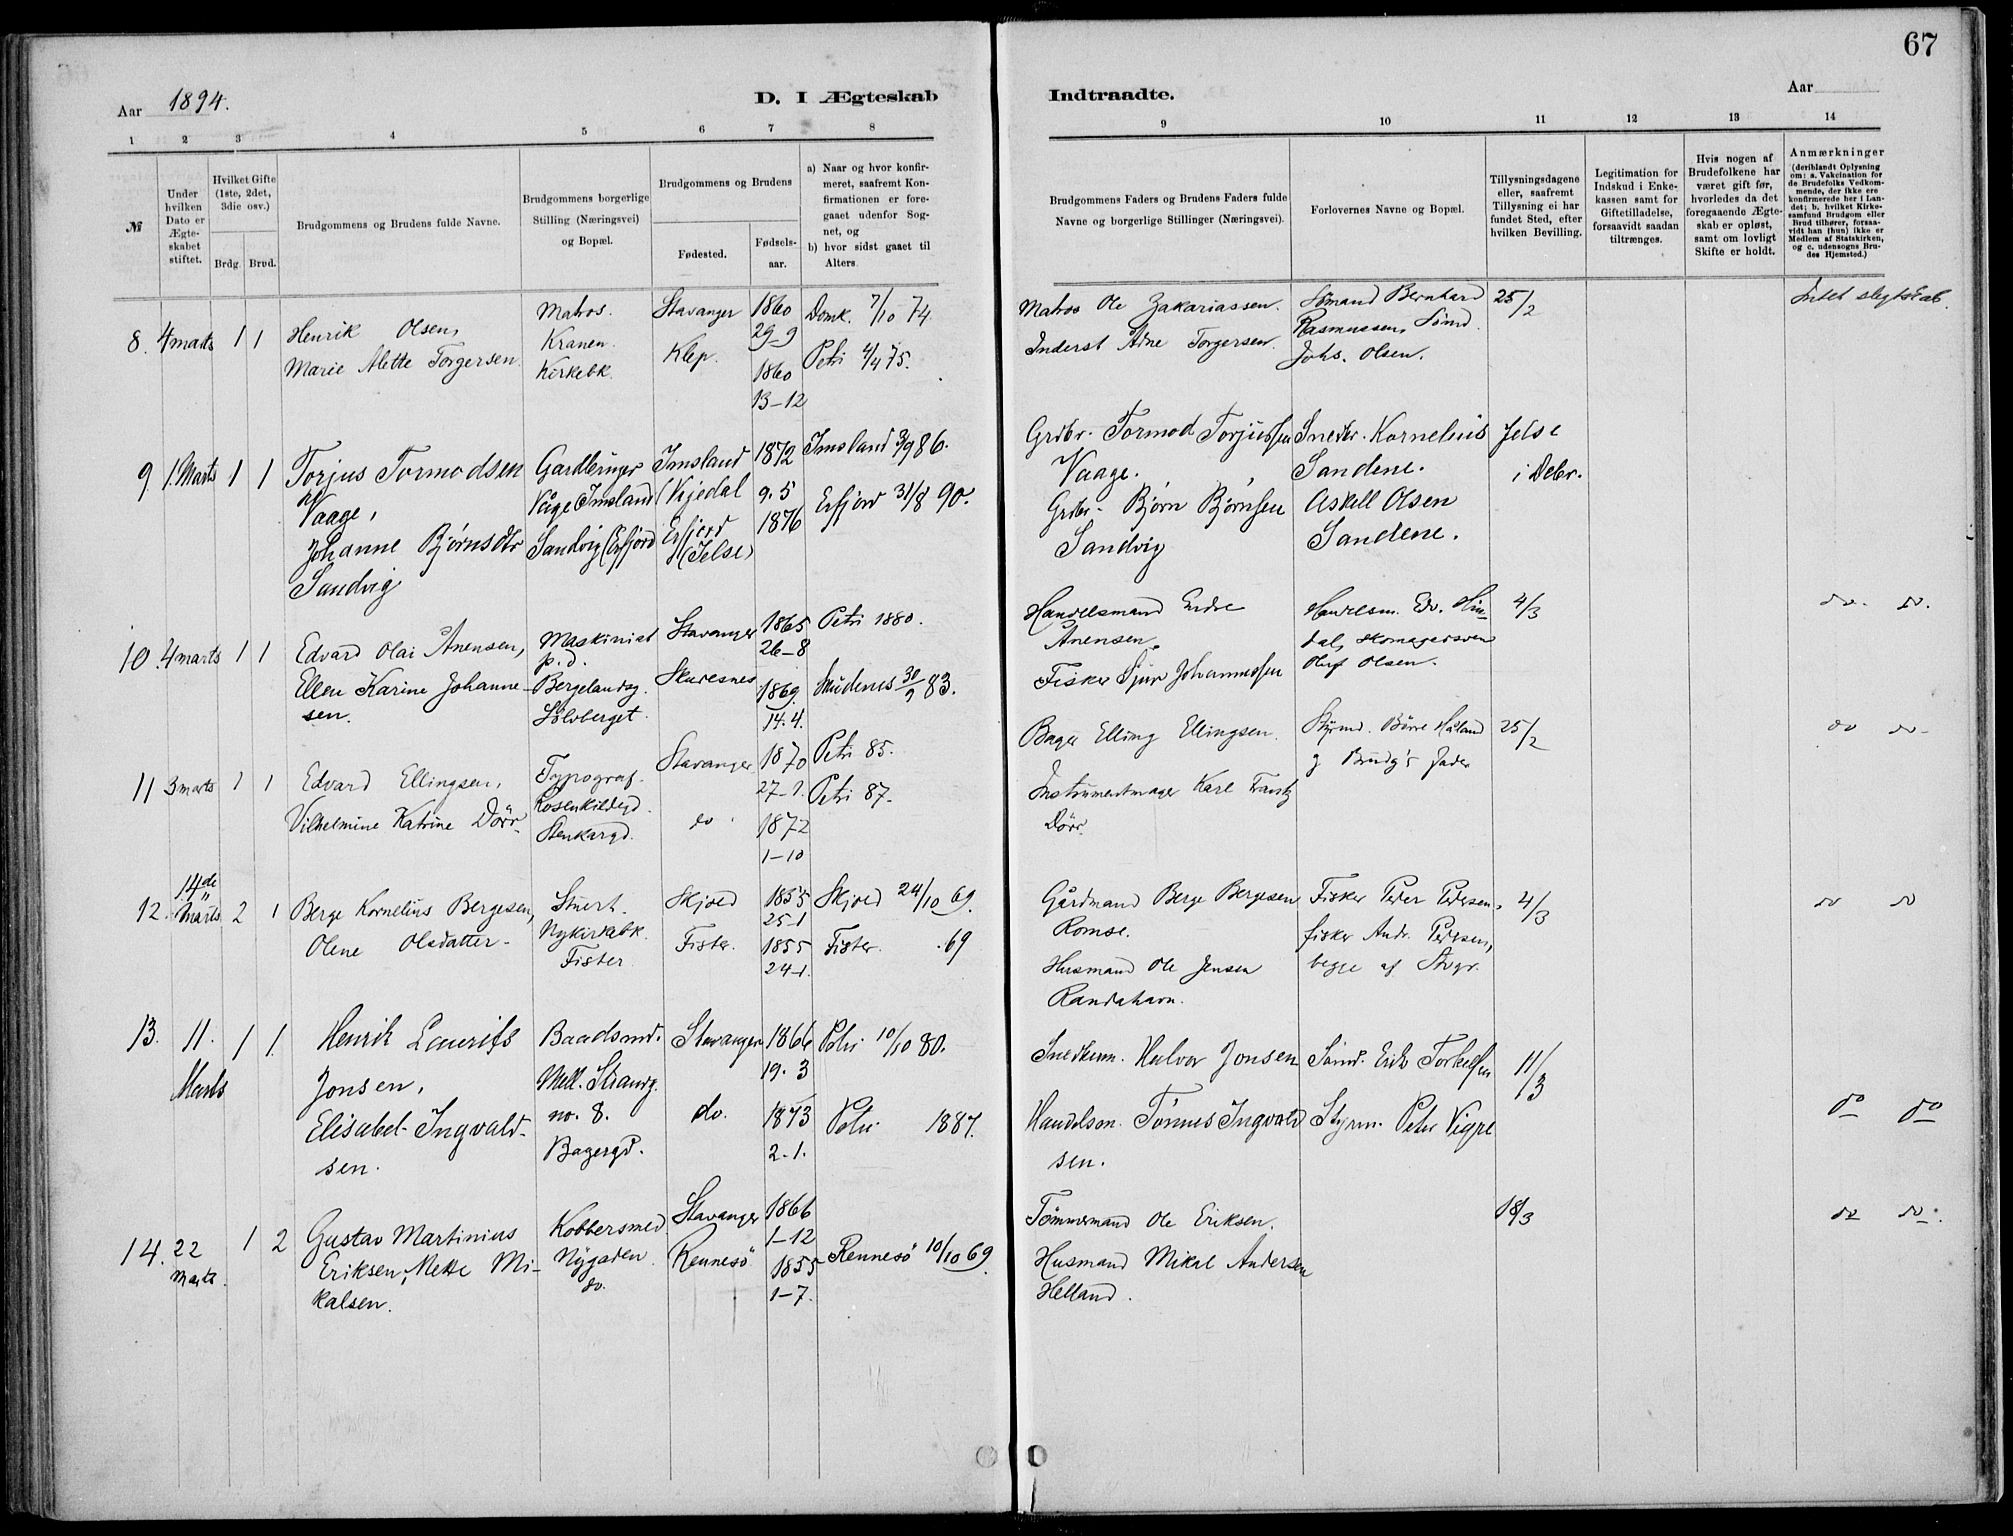 67
Aar 1894.
D. I Ægteskab
Indtraadte.
Aar
1 2 3 4 5 6 7 8 9 10 11 12 13 14
№
Under hvilken Dato er Ægteskabet stiftet.
Hvilket Gifte (1ste, 2det, 3die osv.)
Brdg. Brud.
Brudgommens og Brudens fulde Navne.
Brudgommens borgerlige Stilling (Næringsvei) og Bopæl.
Brudgommens og Brudens
Fødested.
Fødsels-aar.
a) Naar og hvor konfir-
meret, saafremt Kon-
firmationen er fore-
gaaet udenfor Sog-
net, og
b) hvor sidst gaaet til
Alters.
Brudgommens Faders og Brudens Faders fulde
Navne og borgerlige Stillinger (Næringsvei).
Forlovernes Navne og Bopæl.
Tillysningsdagene
eller, saafremt
Tillysning ei har
fundet Sted, efter
hvilken Bevilling.
Legitimation for
Indskud i Enke-
kassen samt for
Giftetilladelse,
forsaavidt saadan
tiltrænges.
Hvis nogen af
Brudefolkene har
været gift før,
hvorledes da det
foregaaende Ægte-
skab er opløst,
samt om lovligt
Skifte er holdt.
Anmærkninger
(deriblandt Oplysning
om: a. Vakcination for
de Brudefolks Vedkom-
mende, der ikke ere
konfirmerede her i Lan-
det; b. hvilket Kirke-
samfund Brudgom eller
Brud tilhører, forsaa-
vidt han (hun) ikke er
Medlem af Statskirken,
og c. udensogns Bru-
des Hjemsted.)
8. 4 marts 1 1
Henrik Olsen,
Marie Alette Torgersen.
Matros.
Kranen.
Kirkebk.
Stavanger
Klep.
1860
29-9
1860
13-12
Domk. 7/10 74.
Petri 4/4 75.
Matros Ole Zakariassen.
Inderst Adne Torgersen.
Sömand Bernhard
Rasmussen, Sömd.
Johs. Olsen.
25/2
Intet slegtskab.
9. 1. Marts 1 1
Torjus Tormodsen
Vaage,
Johanne Bjørnsdtr
Sandvig
Gardbruger
Våge Imsland
Sandvig (Erfjord
Imsland
(Vijedal
Erfjord
(Jelse)
1872
9. 5
1876
Imsland 3/9 86.
Erfjord 31/8 90.
Grdbr. Tormod Torjussen
Vaage.
Grdbr. Bjørn Bjørnsen
Sandvig
Snedkr. Kornelius
Sandene.
Askell Olsen
Sandene.
Jelse
i Debr.
10. 4 marts 1 1
Edvard Olai Anensen,
Ellen Karine Johanne-
sen.
Maskinist
p.d.
Bergelandsg.
Sölvberget.
Stavanger
Skudesnes
1865
26-8
1869
14.4.
Petri 1880.
Skudenes 30/9 83.
Handelsmand Endre
Anensen.
Fisker Sjur Johannessen
Handelsm. Edv. Hin-
dal, Skomagersvend
Oluf Olsen.
4/3
do. do.
11 3 marts 1 1
Edvard Ellingsen,
Vilhelmine Katrine Dörr.
Typograf.
Rosenkildegd.
Stenkargd.
Stavanger
do.
1870
27-1.
1872
1-10
Petri 85.
Petri 87.
Bager Elling Ellingsen.
Instrumentmager Karl Frantz
Dörr.
Styrmd. Börre Håland
g Brudg's Fader
25/2
do do
12. 14de marts 2 1
Berge Kornelius Bergesen,
Olene Olsdatter.
Stuert.
Nykirkebk.
Fister
Skjold
Fister.
1855
25-1
1855
24-1.
Skjold 24/10 69.
Fister. 69
Gårdmand Berge Bergesen
Romse.
Husmand Ole Jensen
Randahavn.
Fisker Peder Pedersen,
fisker Andr. Pedersen,
begge af Stvgr.
4/3
do do
13. 11. Marts 1 1.
Henrik Laurits
Jonsen,
Elisabet Ingvald-
sen.
Baadsmd.
Mell. Strandg.
no. 8.
Bagergd.
Stavanger
do.
1866
19. 3
1873
2.1.
Petri 10/10 80.
Petri 1887.
Snedkerm. Halvor Jonsen
Handelsm. Tönnes Ingvald
sen.
Sömd. Erik Torkelsen
Styrm. Peter Vigre
11/3
do do
14. 22 Marts. 1 2
Gustav Martinius
Eriksen, Mette Mi-
kalsen.
Kobbersmed
Nygaden
do.
Stavanger
Rennesö
1866
1-12
1855
1-7.
Rennesö 10/10 69.
Tömmermand Ole Eriksen.
Husmand Mikal Andersen
Helland.
18/3
do do.